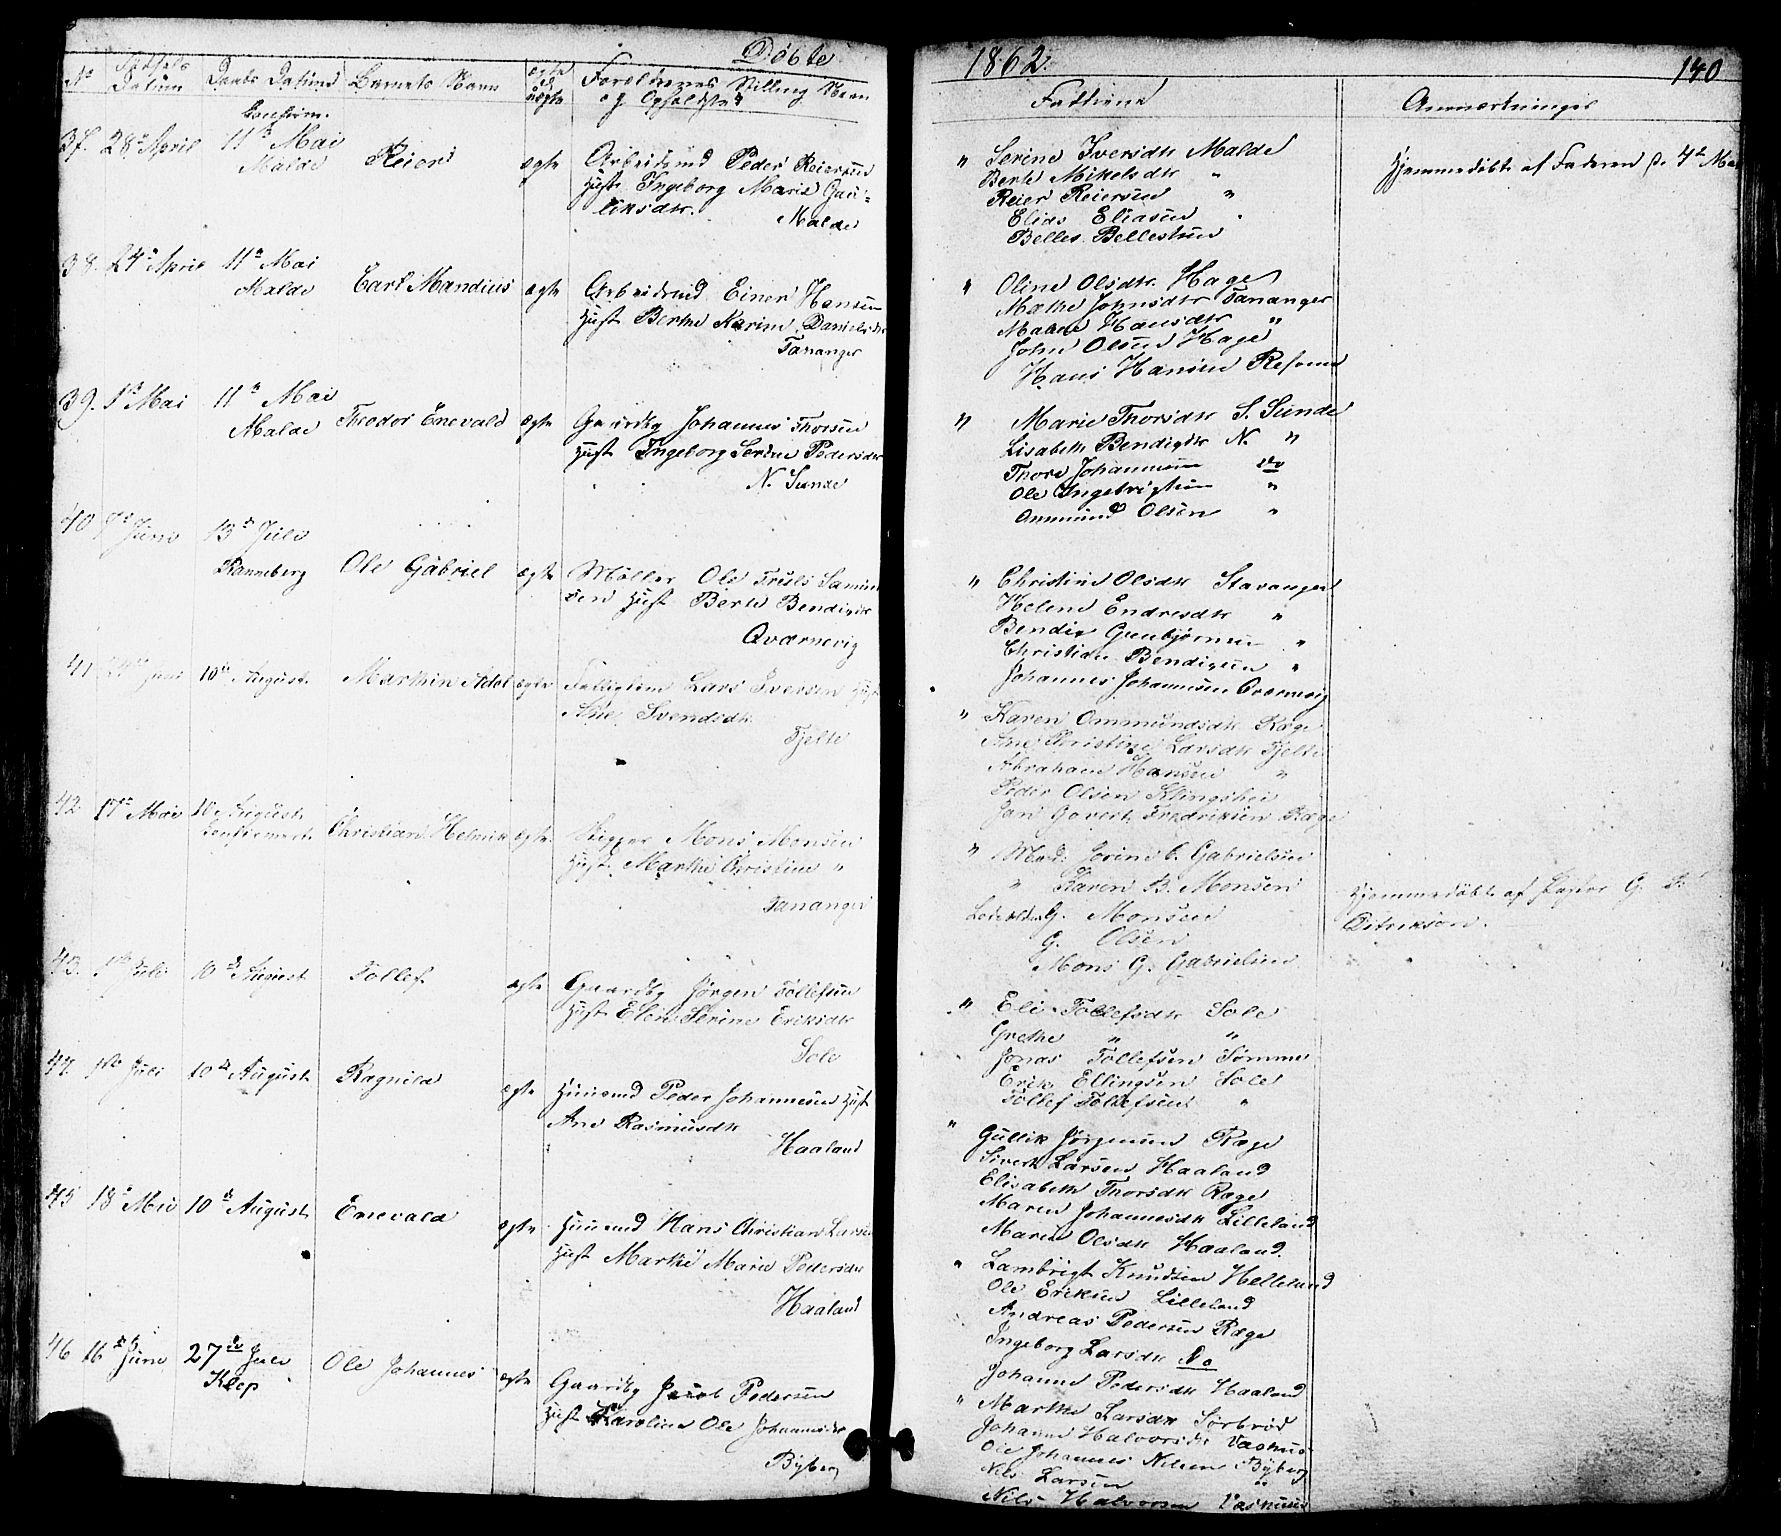 Døbte 1862. 140
No Fødsels Datum Daabs Datum Barnets Navn ægte el. uægte Foreldrenes Stilling Navn og Opholdsted
Faddrene Anmærkninger
Confirm.
37. 28de April 11te Mai Malde Reier ægte Arbeidsmd Peder Reiersen
Hust Ingeborg Marie Gau-
liksdtr. Malde
" Serine Iversdtr Malde
Berte Mikelsdtr "
Reier Reiersen "
Elias Eliasen
Belles Bellesen
Hjemmedøbt af Faderen 4de Mai
38. 24de April 11te Mai Malde Carl Mandius ægte Arbeidsmd Einer Hansen
Hust Berthe Karine Danielsdtr
Tananger
" Oline Olsdtr. Hage
Mathe Johnsdtr Tananger
Malene Hansdtr "
John Olsen Hage
Hans Hansen Risnes
39. 1te Mai 11te Mai Malde Theodor Enevald ægte Gaardbr Johannes Thorsen
Hust Ingeborg Serine Pedersdtr
N. Sunde
" Marie Thorsdtr S. Sunde
Lisabeth Bendixdtr N. "
Thore Johannesen do
Ole Ingebrigtsen "
Ommund Olsen "
40 7de Juni 13de Juli Ranneberg Ole Gabriel ægte Møller Ole Truls Samun-
sen Hust Berte Bendixdtr
Qværnevig
" Christine Olsdtr Stavanger
Helene Endresdtr "
Bendix Gunbjørnsen "
Christian Bendixsen "
Johannes Johannesen Qvernevig
41 24de Juni 10de August Marthin Adol ægte Fattiglem Lars Iversen Hust
Ane Svendsdtr.
Tjelte
" Karen Ommundsdtr Ræge
Ane Christine Larsdtr Tjelte
Abraham Hansen "
Peder Olsen Klingshei
Jan Govert Fredriksen Ræge
42. 17de Mai 10de August Confirmert Christian Helmik ægte Skipper Mons Monsen
Hust. Marthe Christine "
Tananger
" Mad: Serine C. Gabrielsen
" Karen B. Monsen
G. Monsen
G. Olsen
Mons G. Gabrielsen
Hjemmedøbt af G. S.
Ditrikson.
43. 1te Juli 10de August Tollef ægte Gaardbr Jørgen Tollefsen
Hust Elen Serine Eriksdtr
Sole
" Eli Tollefsdtr Sole
Grethe " "
Jonas Tollefsen Sømme
Erik Ellingsen Sole
Tollef Tollefsen "
44. 1te Juli 10de August Ragnild ægte Huusmd Peder Johannesen Hust
Ane Rasmusdtr
Haaland
" Gullik Jørgensen Ræge
Sivert Larsen Haaland
Elisabeth Thorsdtr Ræge
Maren Johannesdtr Lilleland
Maren Olsdtr Haaland.
45 18de Mai 10de August Enevald ægte Huusmd Hans Christian Larsen
Hust Marthe Marie Pedersdtr
Haaland
" Lambrigt Knudsen Helleland
Ole Eriksen Lilleland
Andreas Pedersen Ræge
Ingeborg Larsdtr do
Johanne Pedersdtr Haaland
46 16de Juni 27de Juli Klep Ole Johannes ægte Gaardbr Jacob Pedersen
Hust Karoline Ole Johannesdtr
Byberg
" Marthe Larsdtr Sørbrød
Johanne Halvorsdtr Vashuus
Ole Johannes Nilsen Byberg
Nils Larsen "
Nils Halvorsen Vashuus